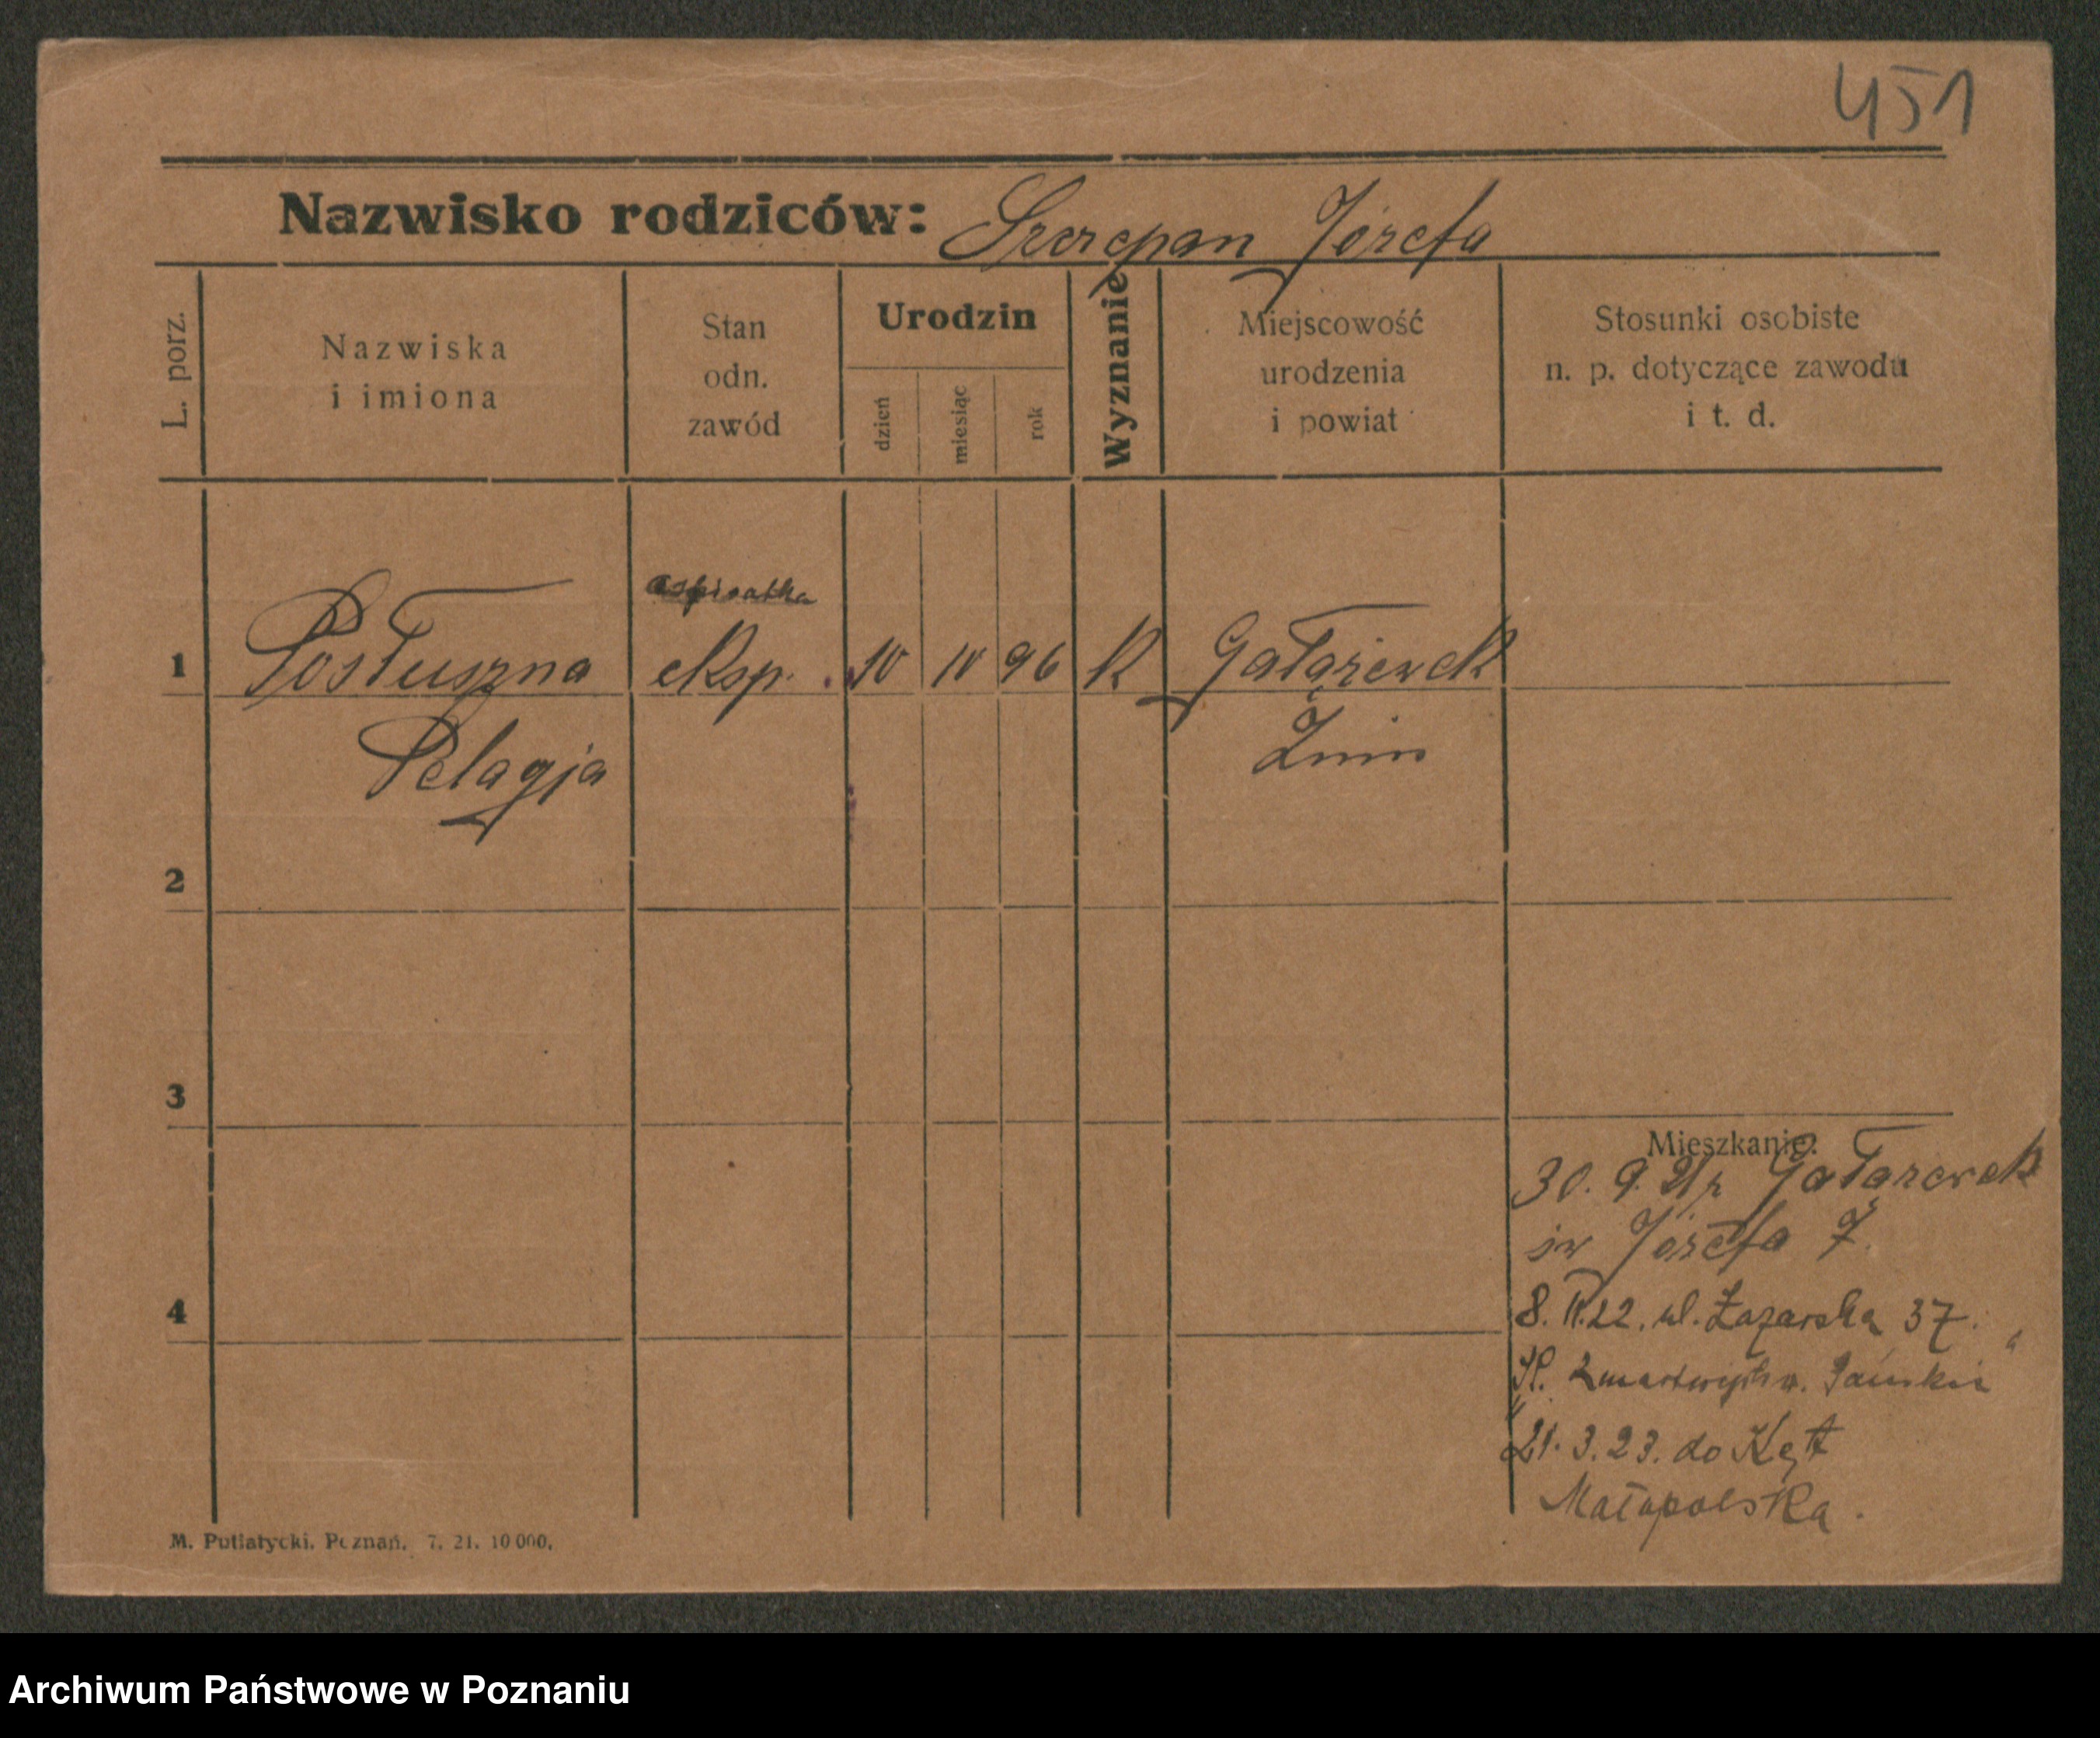 451
Nazwisko rodziców: Szczepan Józefa
L. porz.
Nazwiska
i imiona
Stan
odn.
zawód
Urodzin
dzień
miesiąc
rok
Wyznanie
Miejscowość
urodzenia
i powiat
Stosunki osobiste
n. p. dotyczące zawodu
i t. d.
aspirantka
1 Posłuszna eksp. 10 10 96 K Gałązewek
Pelagja Żnin
2
3
4
Mieszkanie:
30. 9. 21 z Gałązewek
św Józefa 7.
8. 22. ul. Łazarska 37.
Zmartwychw. Pańskie
21. 3. 23. do Kęt
Małopolska.
M. Putiatycki. Poznań. 7. 21. 10 000.
Archiwum Państwowe w Poznaniu